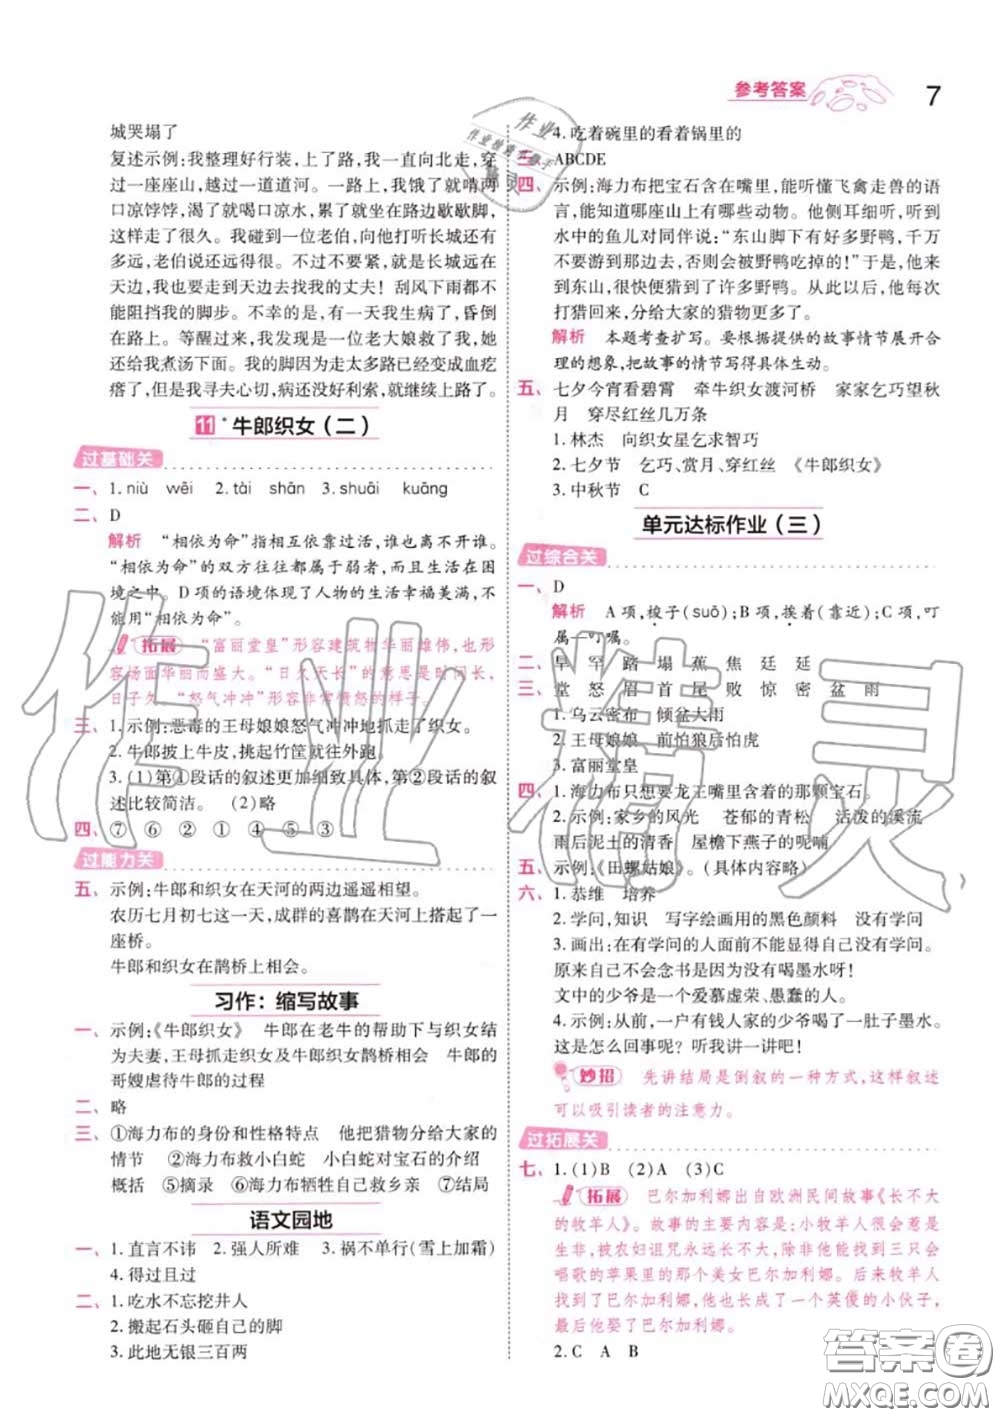 参考答案 7
城哭塌了
复述示例:我整理好行装,上了路,我一直向北走,穿
过一座座山,越过一道道河。一路上,我饿了就啃两
口凉饽饽,渴了就喝口凉水,累了就坐在路边歇歇脚,
这样走了很久。我碰到一位老伯,向他打听长城还有
多远,老伯说还远得很。不过不要紧,就是长城远在
天边,我也要走到天边去找我的丈夫！刮风下雨都不
能阻挡我的脚步。不幸的是,有一天我生了病,昏倒
在路上。等醒过来,我才发觉一位老大娘救了我,她
还给我煮汤下面。我的脚因为走太多路已经变成血疙
瘩了,但是我寻夫心切,病还没好利索,就继续上路了。
11* 牛郎织女(二)
过基础关
一、1. niù wēi 2. tài shān 3. shuāi kuāng
二、D
解析 “相依为命”指相互依靠过活,谁也离不开谁。
“相依为命”的双方往往都属于弱者,而且大都处在困
境之中。D 项的语境体现了人物的生活幸福美满,不
能用“相依为命”。
拓展 “富丽堂皇”形容建筑物华丽雄伟,也形
容场面华丽而盛大。“日久天长”的意思是时间长,
日子久。“怒气冲冲”形容非常愤怒的样子。
三、1. 示例:恶毒的王母娘娘怒气冲冲地抓走了织女。
2. 牛郎披上牛皮,挑起竹筐就往外跑。
3. (1)第④段话的叙述更加细致具体,第②段话的叙
述比较简洁。 (2)略
四、⑦ ⑥ ② ① ④ ⑤ ③
过能力关
五、示例:牛郎和织女在天河的两边遥遥相望。
农历七月初七这一天,成群的喜鹊在天河上搭起了一
座桥。
牛郎和织女在鹊桥上相会。
习作：缩写故事
一、示例:《牛郎织女》 牛郎在老牛的帮助下与织女结
为夫妻,王母抓走织女及牛郎织女鹊桥相会 牛郎的
哥嫂虐待牛郎的过程
二、略
三、①海力布的身份和性格特点 他把猎物分给大家的
情节 ②海力布救小白蛇 小白蛇对宝石的介绍
概括 ⑤摘录 ⑥海力布牺牲自己救乡亲
语文园地
一、1. 直言不讳 2. 强人所难 3. 祸不单行(雪上加霜)
4. 得过且过
二、1. 吃水不忘挖井人
2. 搬起石头砸自己的脚
3. 此地无银三百两
4. 吃着碗里的看着锅里的
三、ABCDE
四、示例:海力布把宝石含在嘴里,能听懂飞禽走兽的语
言,能知道哪座山上有哪些动物。他侧耳细听,听到
水中的鱼儿对同伴说:“东山脚下有好多野鸭,千万
不要游到那边去,否则会被野鸭吃掉的！”于是,他来
到东山,很快便猎到了许多野鸭。从此以后,他每次
打猎回来,分给大家的猎物更多了。
解析 本题考查扩写。要根据提供的故事情节展开合
理的想象,把故事的情节写得具体生动。
五、七夕今宵看碧霄 牵牛织女渡河桥 家家乞巧望秋
月 穿尽红丝几万条
1. 林杰 向织女星乞求智巧
2. 七夕节 乞巧、赏月、穿红丝 《牛郎织女》
3. 中秋节 C
单元达标作业(三)
过综合关
一、D
解析 A 项,梭子(suō);B 项,挨着(靠近);C 项,叮
属—叮嘱。
二、旱 罕 踏 塌 蕉 焦 廷 延
三、堂 怒 眉 首 尾 败 惊 密 盆 雨
1. 乌云密布 倾盆大雨
2. 王母娘娘 前怕狼后怕虎
3. 富丽堂皇
四、1. 海力布只想要龙王嘴里含着的那颗宝石。
2. 示例:家乡的风光 苍郁的青松 活泼的溪流
雨后泥土的清香 屋檐下燕子的呢喃
五、示例:《田螺姑娘》。(具体内容略)
六、1. 恭维 培养
2. 学问,知识 写字绘画用的黑色颜料 没有学问
3. 画出:在有学问的人面前不能显得自己没有学问。
原来自己不会念书是因为没有喝墨水呀!
文中的少爷是一个爱慕虚荣、愚蠢的人。
4. 示例:从前,一户有钱人家的少爷喝了一肚子墨水。
这是怎么回事呢？听我讲一讲吧!
妙招 先讲结局是倒叙的一种方式,这样叙述
可以吸引读者的注意力。
过拓展关
七、1. (1)B (2)A (3)C
拓展 巴尔加利娜出自欧洲民间故事《长不大
的牧羊人》。故事的主要内容是:小牧羊人很会惹是
生非,被农妇诅咒永远长不大,除非他能找到三只会
唱歌的苹果里的那个美女巴尔加利娜。后来牧羊人
找到了巴尔加利娜,他也长成了一个英俊的小伙子,
最后他娶了巴尔加利娜。
2. C A B
作业精灵
答案圈
MXQE.COM